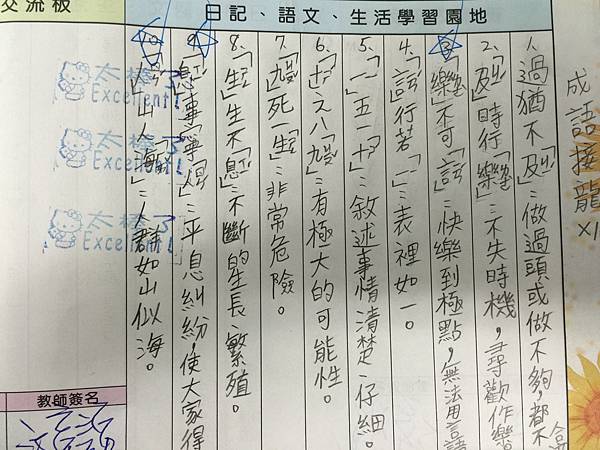 交流板
日記、語文、生活學習園地
成語接龍×1
1.過猶不「及」:做過頭或做不夠,都不
2.「及」時行「樂」:不失時機,尋歡作樂
3.「樂」不可「言」:快樂到極點,無法用言語
4.「言」行若「一」:表裡如一。
5.「一」五一「十」:敘述事情清楚、仔細。
6.「十」之八「九」:有極大的可能性。
7.「九」死一「生」:非常危險。
8.「生」生不「息」:不斷的生長、繁殖。
9.「息」事「寧人」:平息糾紛,使大家得
10.「人」山人「海」:人群如山似海。
太棒了
Excellent!
太棒了
Excellent!
太棒了
Excellent!
教師簽名